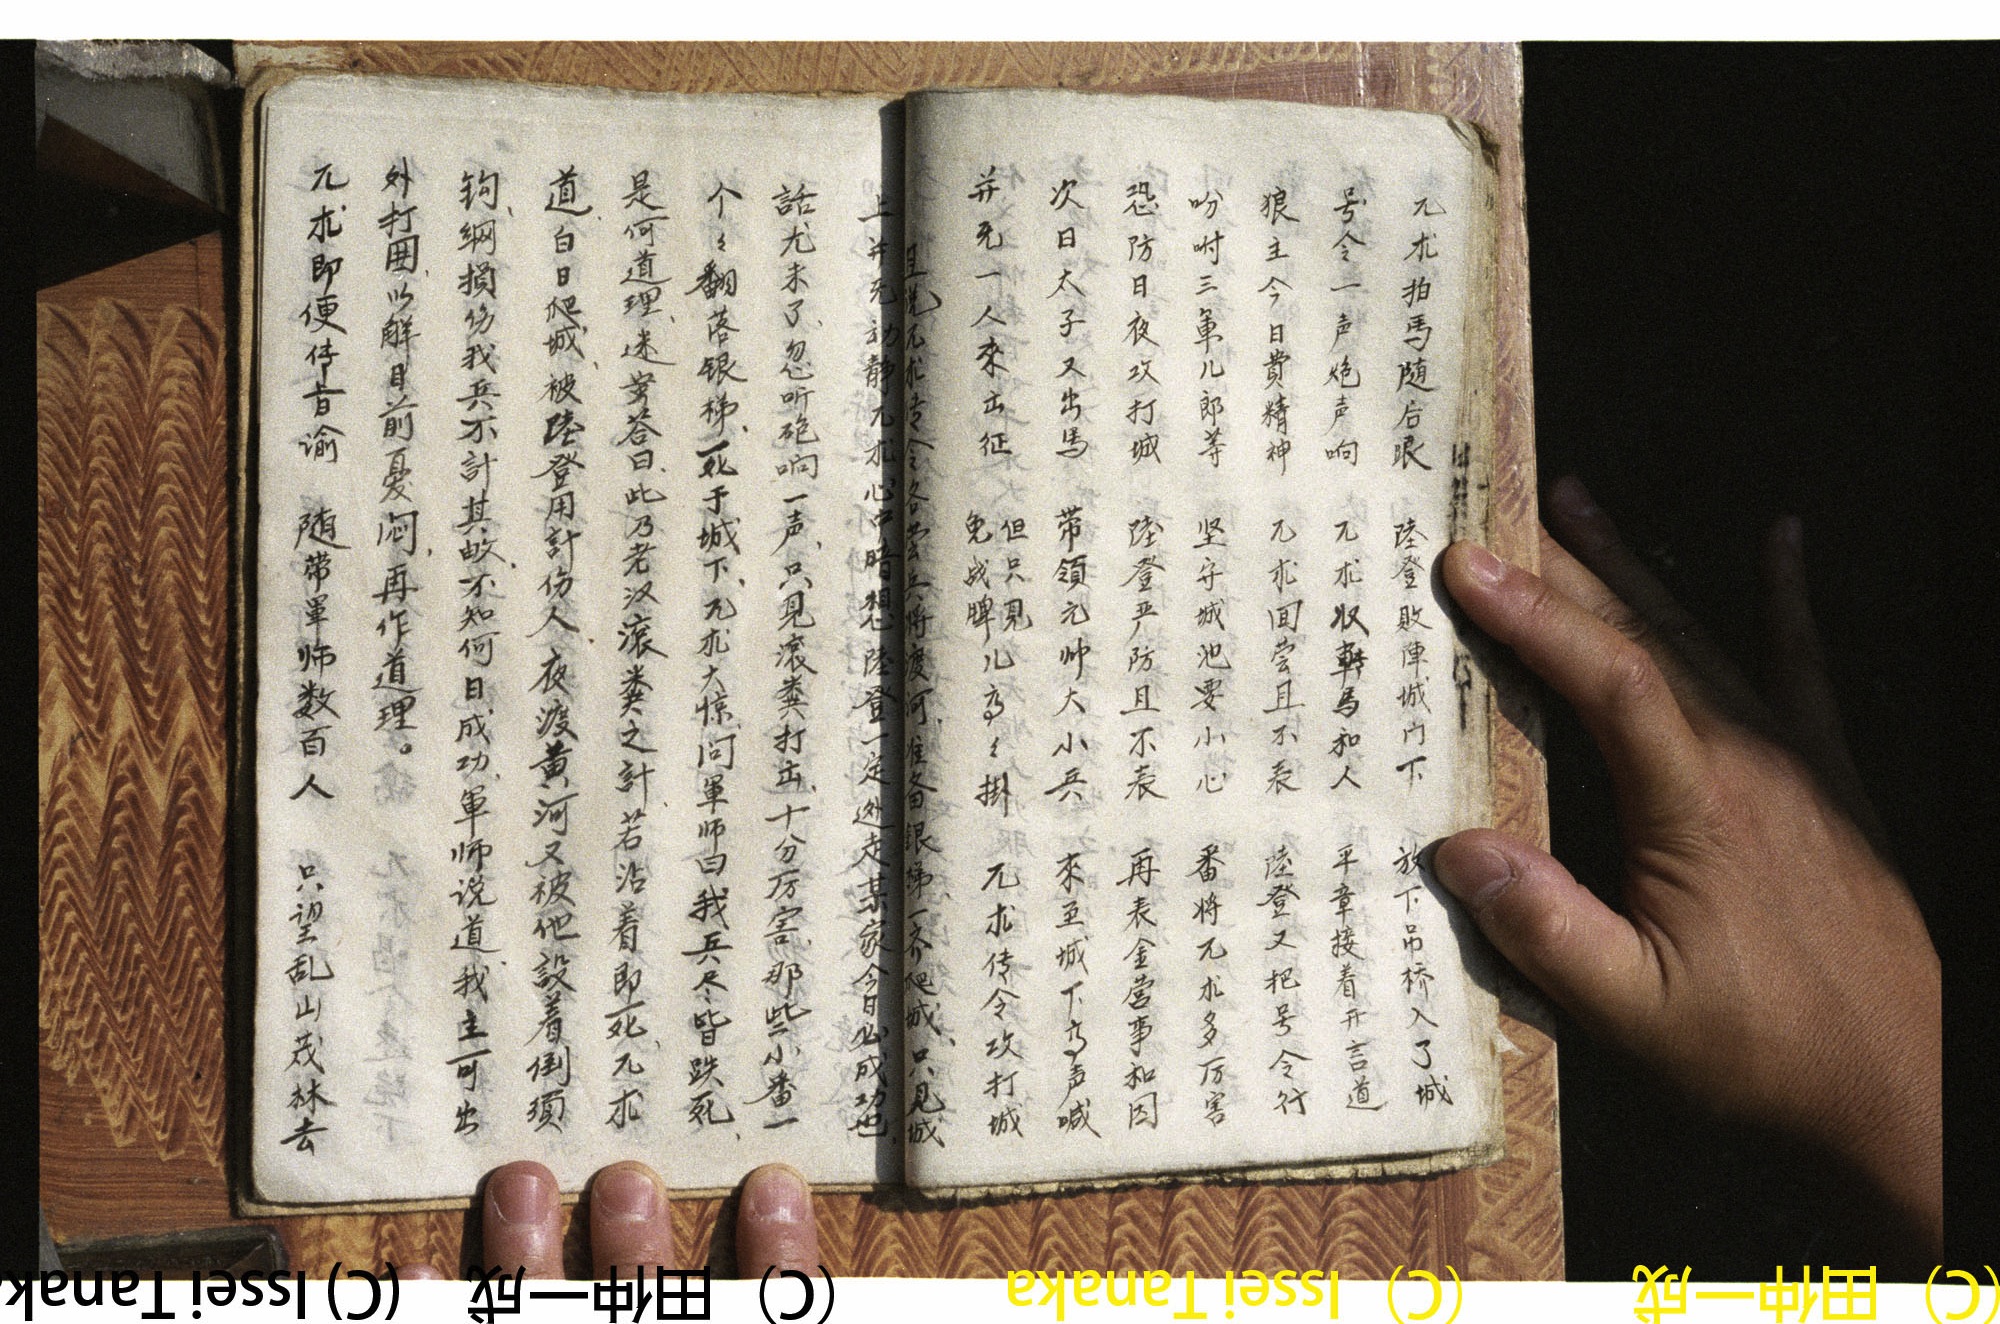 兀朮拍馬随后跟 陸登敗陣城门下 放下吊桥入了城
号令一声炮声响 兀朮收轉馬和人 平章接着开言道
狼主今日費精神 兀朮回营且不表 陸登又把号令行
吩咐三軍儿郎等 坚守城池要小心 番将兀朮多厉害
恐防日夜攻打城 陸登严防且不表 再表金营事和因
次日太子又出馬 带領元帅大小兵 來至城下高声喊
并无一人來出征 但只見免战牌儿高々掛 兀朮传令攻打城
且说兀朮传令各营兵将渡河准备銀梯一齐爬城、只見城
上并无动静兀朮心中暗想陸登一定逃走某家今日必成功也、
話尤未了、忽听砲响一声、只見滚粪打出、十分厉害、那些小番一
个々翻落银梯、死于城下、兀朮大惊、问軍师曰我兵尽皆跌死、
是何道理、迷蚩答曰、此乃老汉滚粪之計、若沾着即死、兀朮
道、白日爬城、被陸登用計伤人、夜渡黄河又被他設着倒须
钩、綱損伤我兵不計其数、不知何日成功、軍师说道、我主可出
外打囲、以解目前憂闷、再作道理。
兀朮即便传旨谕 随带軍师数百人 只望乱山茂林去
(C) Issei Tanaka (C) 田仲一成 (C) Issei Tanaka (C) 田仲一成